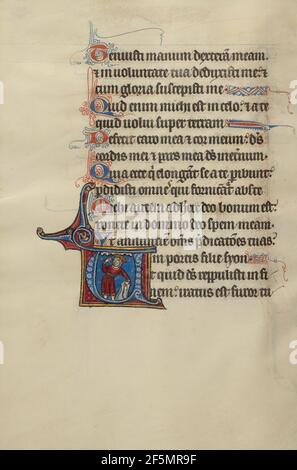 Tenuisti manum dexteram meam:
⁊ in uoluntate tua deduxisti me: ⁊
cum gloria suscepisti me
Quid enim michi est in celo: ⁊ a te
quid uolui super terram
Defecit caro mea ⁊ cor meum: ds̄
cordis mei ⁊ pars mea ds̄ in eternum
Quia ecce qui elongant se a te peribunt:
perdidisti omnes qui fornicantur abs te
Michi autem adherere deo bonum est:
ponere in domino deo spem meam
Ut annuntiem om̄s predicationes tuas:
in portis filie syon
Ut quid ds̄ reppulisti in fi
nem: iratus est furor tu
alamy
2F5MR9F